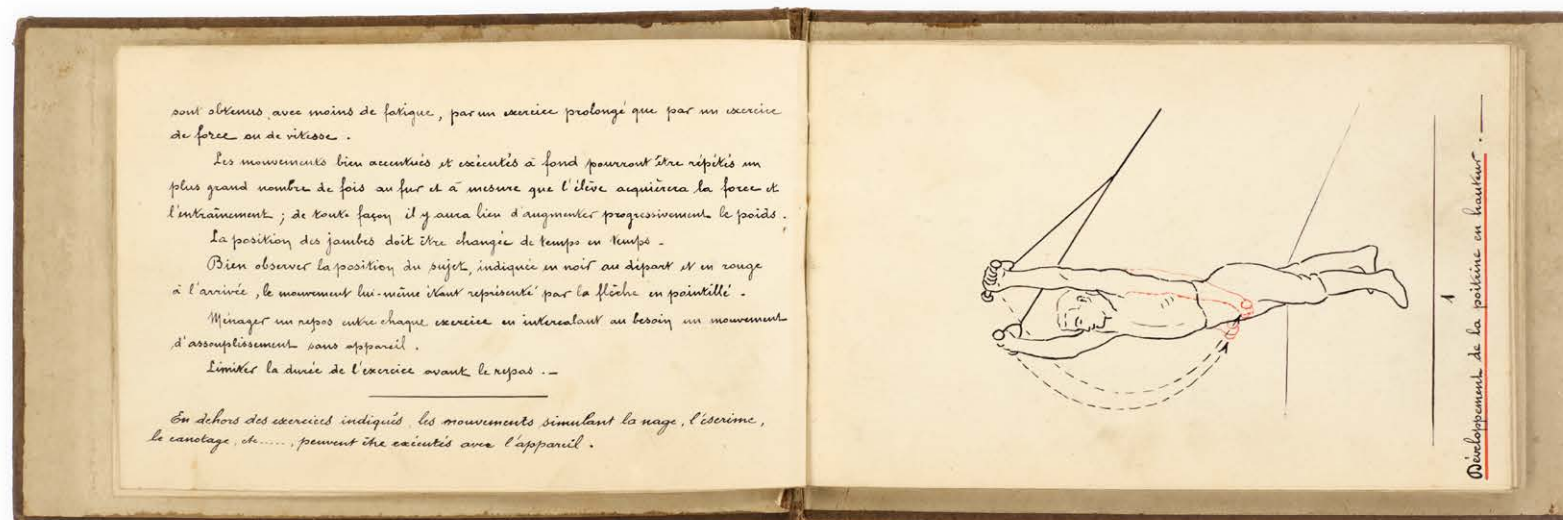 sont obtenus, avec moins de fatigue, par un exercice prolongé que par un exercice
de force ou de vitesse.
Les mouvements bien accentués et exécutés à fond pourront être répétés un
plus grand nombre de fois au fur et à mesure que l'élève acquièrera la force et
l'entraînement ; de toute façon il y aura lieu d'augmenter progressivement le poids.
La position des jambes doit être changée de temps en temps.
Bien observer la position du sujet, indiquée en noir au départ et en rouge
à l'arrivée, le mouvement lui-même étant représenté par la flèche en pointillé.
Ménager un repos entre chaque exercice en intercalant au besoin un mouvement
d'assouplissement sans appareil.
Limiter la durée de l'exercice avant le repas.—
En dehors des exercices indiqués, les mouvements simulant la nage, l'escrime,
le canotage, etc......, peuvent être exécutés avec l'appareil.
1
Développement de la poitrine en hauteur.—